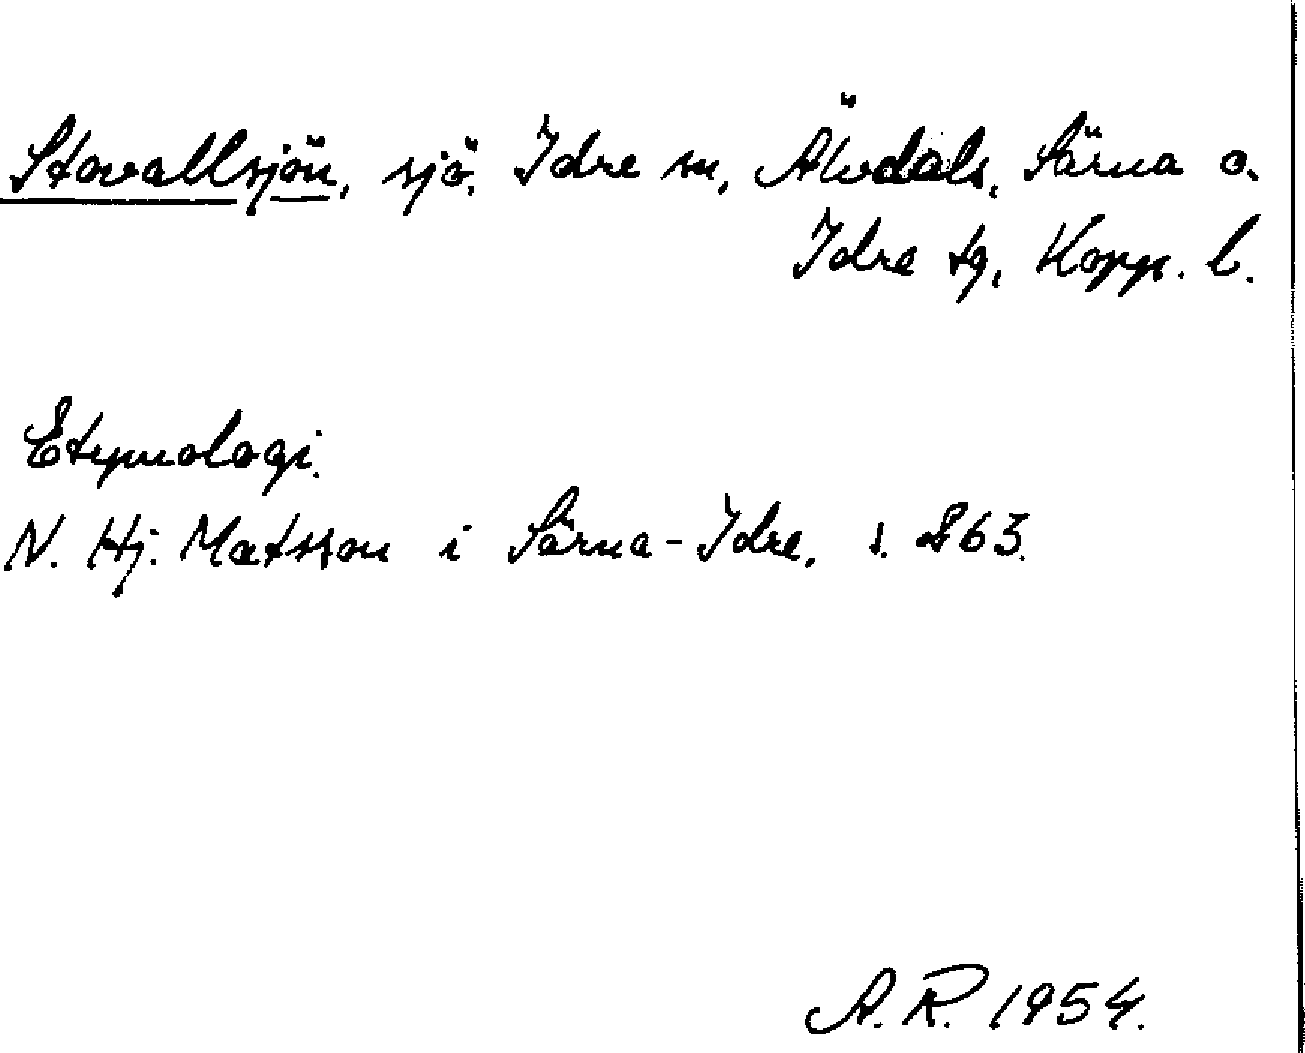 Stovallsjön, sjö, Idre sn, Älvdals, Särna o.
Idre tg, Kopp. l.
Etymologi.
N. Hj. Matsson i Särna-Idre, s. 863.
A. R. 1954.